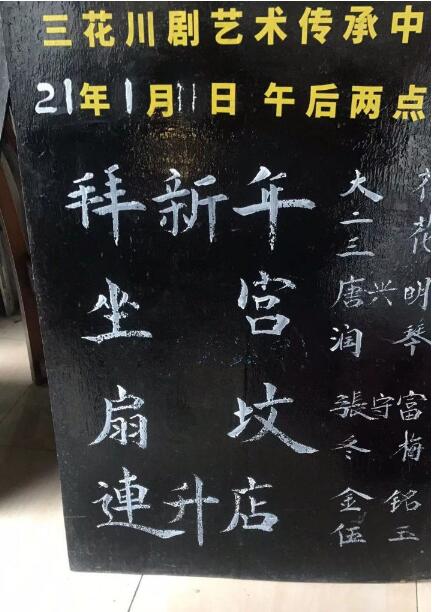 三花川剧艺术传承中
21年1月11日 午后两点
拜新年 大
二三 花
坐宫 唐兴明
润 琴
扇坟 張守富
冬 梅
連升店 金 銘
伍 玉